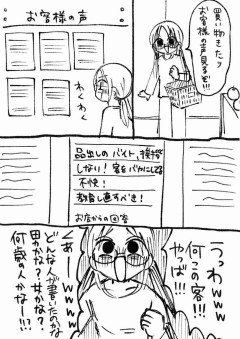 買い物きたッ
お客様の声
見るぞ!!!
お客様の声
わくわく
品出しのバイト、挨拶
しない！客をバカにしてる
不快！
教育し直すべき！
お店からの回答
うっわwww
何この客!!!
やっば!!!
あーwww
どんな人が書いたのかな
男かな？女かな？
何歳の人かなー!!?